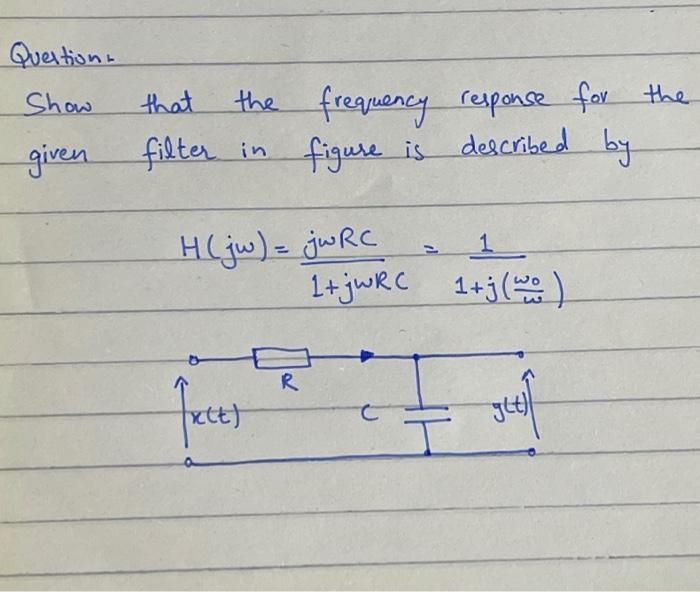 Question:-
Show that the frequency response for the
given filter in figure is described by
H(jω) = jωRC / 1+jωRC = 1 / 1+j(ω₀/ω)
R
x(t) C y(t)